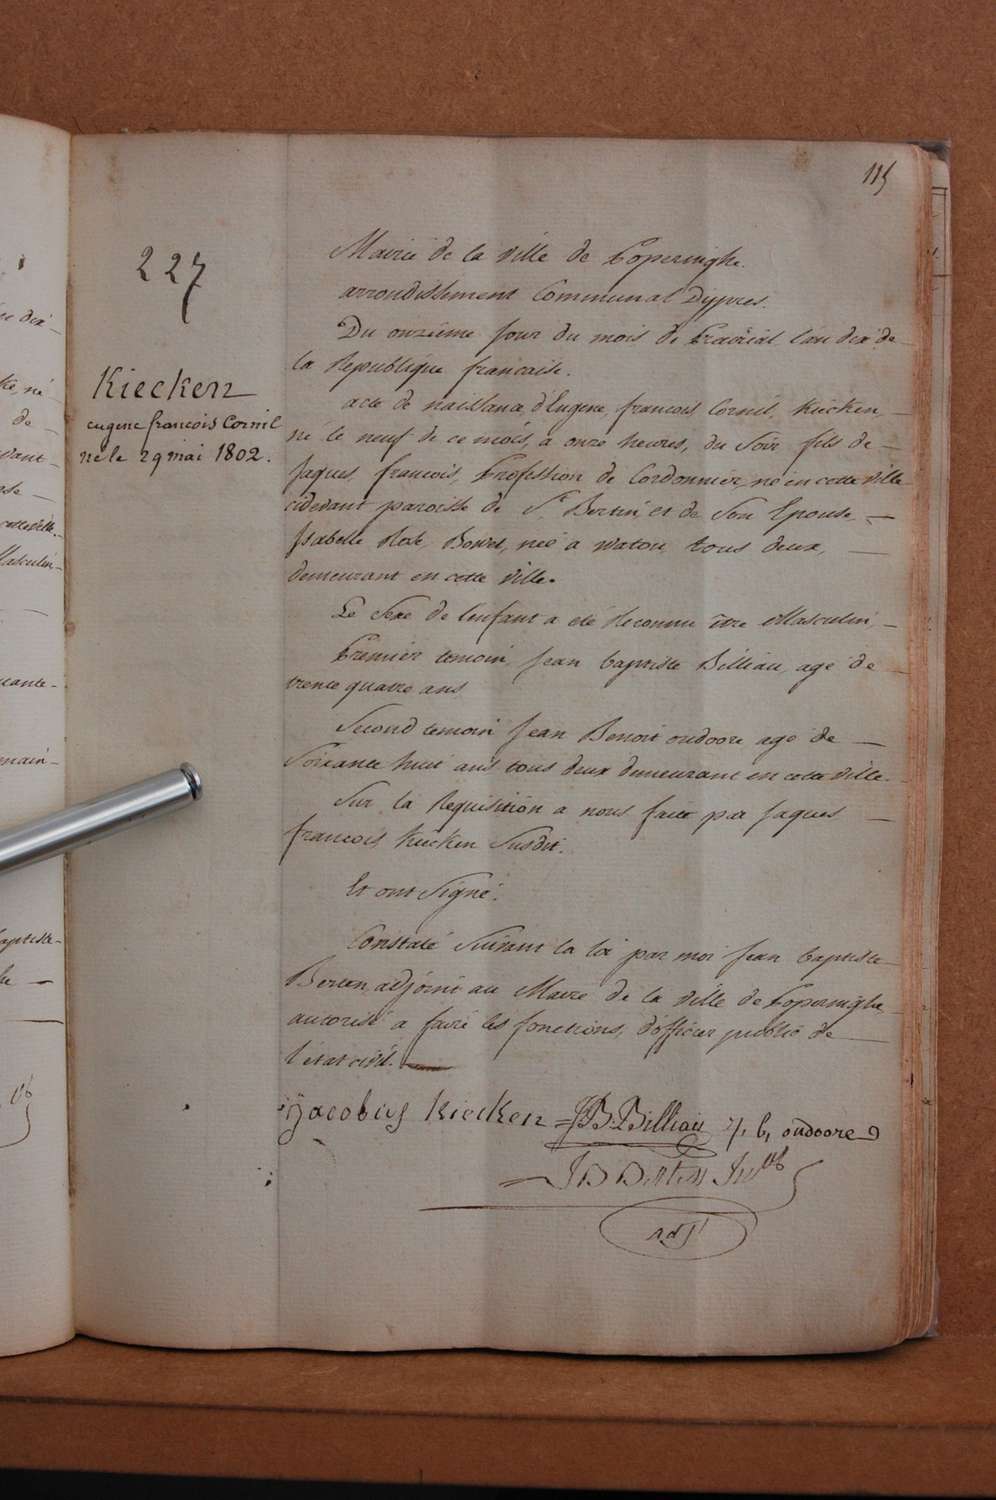 115
227
Kiecken
eugene francois Cornil
né le 29 mai 1802.
Mairie de la Ville de Poperinghe.
arrondissement Communal Dijpres.
Du onzième Jour du mois de Prairial l'an dix de
la Republique francaise.
acte de naissance, d'Eugene, francois Cornil, Kiecken,
né le neuf de ce mois, a onze heures, du Soir fils de
Jaques, francois, Profession de Cordonnier, né en cette ville
cidevant paroisse de St. Bertin, et de Son Epouse
Isabelle Rose, née a Watou, tous deux,
demeurant en cette Ville.
Le Sexe de l'enfant a été Reconnu être Masculin,
Premier temoin, Jean baptiste Billiau, agé de
trente quatre ans
Second temoin Jean Benoit oudoore agé de
Soixante huit ans tous deux demeurant en cette ville.
Sur la Requisition a nous faite par Jaques
francois Kiecken Susdit.
Et ont Signé.
Constaté Suivant la loi par moi Jean baptiste
adjoint au Maire de la Ville de Poperinghe
autorisé a faire les fonctions, d'officier public de
l'état civil.
Jacobus Kiecken JB Billiau J, b, oudoore
J B
adjt